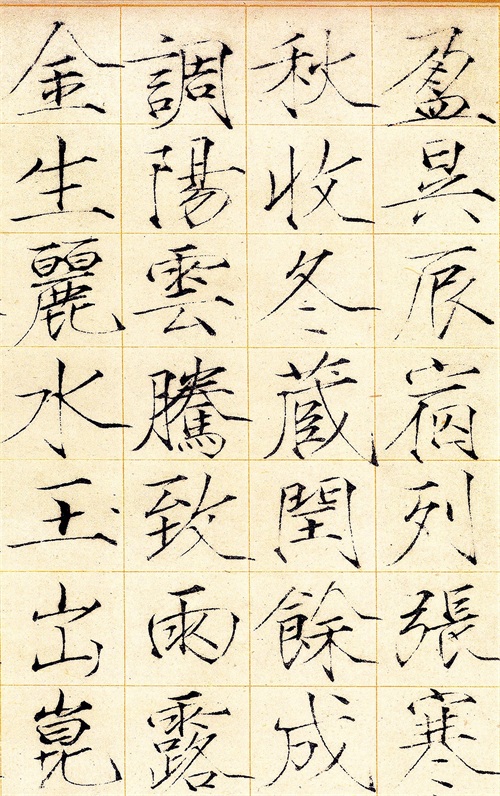 盈昃辰宿列張寒
秋收冬蔵閏餘成
調陽雲騰致雨露
金生麗水玉出崑